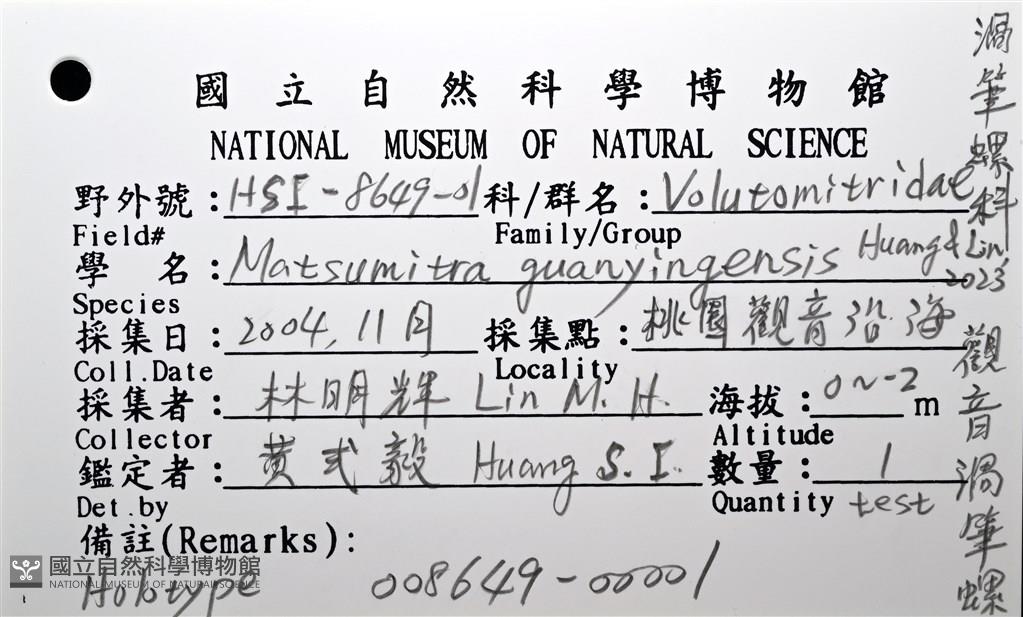 國立自然科學博物館
NATIONAL MUSEUM OF NATURAL SCIENCE
野外號：HSI-8649-01 科/群名：Volutomitridae
Field# Family/Group
學名：Matsumitra guanyingensis Huang & Lin, 2023
Species
採集日：2004, 11月 採集點：桃園觀音沿海
Coll.Date Locality
採集者：林明輝 Lin M. H. 海拔：0~-2 m
Collector Altitude
鑑定者：黃式毅 Huang S. I. 數量：1
Det.by Quantity test
備註(Remarks)：
Holotype 008649-00001
渦筆螺科
觀音渦筆螺
國立自然科學博物館
NATIONAL MUSEUM OF NATURAL SCIENCE